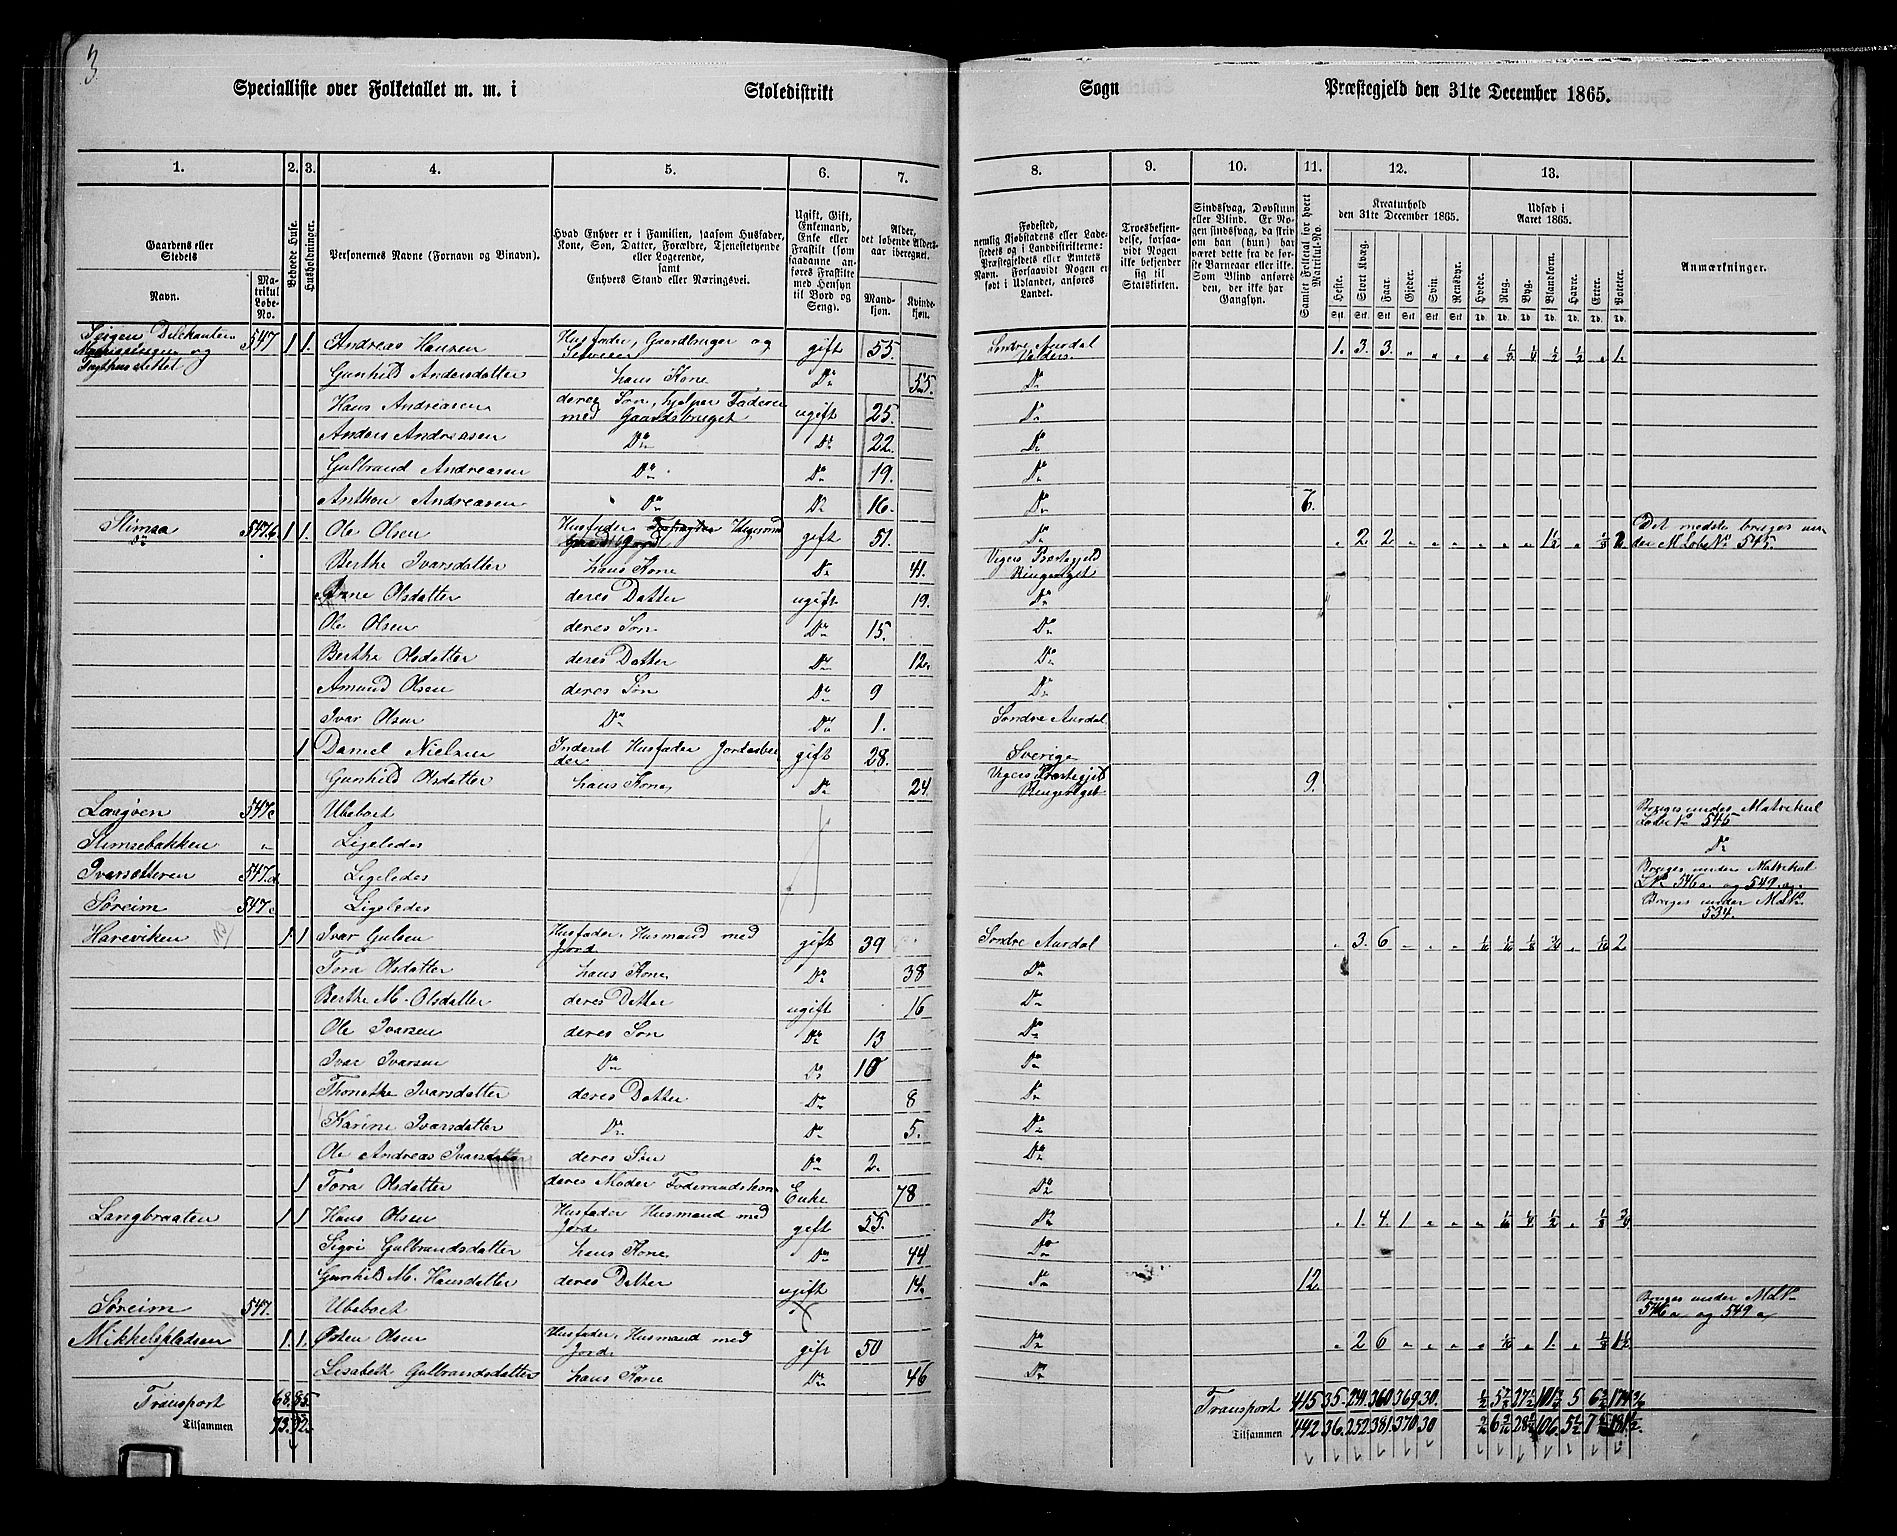 3
Specialliste over Folketallet m. m. i Skoledistrikt Sogn Præstegjeld den 31te December 1865.
1. 2. 3. 4. 5. 6. 7. 8. 9. 10. 11. 12. 13.
Gaardens eller Stedets
Navn.
Matrikul Løbe-No.
Beboede Huse.
Husholdninger.
Personernes Navne (Fornavn og Binavn).
Hvad Enhver er i Familien, saasom Husfader, Kone, Søn, Datter, Forældre, Tjenestetyende eller Logerende, samt Enhvers Stand eller Næringsvei.
Ugift, Gift, Enkemand, Enke eller Fraskilt (som saadanne anføres Fraskilte med Hensyn til Bord og Seng).
Alder, det løbende Aldersaar iberegnet.
Mandkjøn. Kvindekjøn.
Fødested, nemlig Kjøbstadens eller Ladestedets og i Landdistrikterne: Præstegjeldets eller Amtets Navn. Forsaavidt Nogen er født i Udlandet, anføres Landet.
Troesbekjendelse, forsaavidt Nogen ikke bekjender sig til Statskirken.
Sindssvag, Døvstum eller Blind. Er Nogen sindssvag, da skriv om han (hun) har været dette fra de første Barneaar eller ikke. Som Blind anføres den, der ikke har Gangsyn.
Samlet Folketal for hvert Matrikul-No.
Kreaturhold den 31te December 1865.
Heste. Stort Kvæg. Faar. Gjeder. Svin. Rensdyr.
Udsæd i Aaret 1865.
Hvede. Rug. Byg. Blandkorn. Havre. Erter. Poteter.
Anmærkninger.
547 1 1. Andreas Hansen Husfader, Gaardbruger og gift 55. Søndre Aurdal Valders. 1. 3. 3. „ „ „ „ 1/3 1/4 1/2 1/2 „ 1.
Gunhild Andersdatter hans Kone Do 55. Do
Hans Andreasen deres Søn, hjelper Faderen med Gaardsbruget ugift 25. Do
Anders Andreasen Do Do 22. Do
Gulbrand Andreasen Do Do 19. Do
Anthon Andreasen Do Do 16. Do 6.
Slimsa 547.b 1 1. Ole Olsen Husfader gift 51. Do „ 2 2. „ „ „ „ „ „ 1 1/2 „ 1/8 2. Det medste bruges under M. Løbe No 545.
Berthe Ivarsdatter hans Kone Do 41. Præstegjeld Ringeriget
Anne Olsdatter deres Datter ugift 19. Do
Ole Olsen deres Søn Do 15. Do
Berthe Olsdatter deres Datter Do 12. Do
Amund Olsen deres Søn Do 9 Do
Ivar Olsen Do Do 1. Søndre Aurdal
1 Daniel Nielsen Inderst Husfader gift 28. Sverige
Gunhild Olsdatter hans Kone Do 24. Præstegjeld Ringeriget 9.
547c Ubeboet Bruges under Matrikul Løbe No 545
Slimsebakken „ Ligeledes Do
Ivarsætteren 547.d Ligeledes Bruges under Matrikul L No 546a og 549.a.
Søreim 547.e Ligeledes Bruges under M L No 534.
Hareviken 1. 1 Ivar Gulsen Husfader, Husmand med Jord gift 39 Søndre Aurdal „ 3. 6 „ „ „ 1/16 1/16 1/8 3/4 „ 1/16 2
Tora Olsdatter hans Kone Do 38 Do
Berthe M. Olsdatter deres Datter ugift 16 Do
Ole Ivarsen deres Søn Do 13 Do
Ivar Ivarsen Do Do 10 Do
Thonette Ivarsdatter deres Datter Do 8 Do
Karine Ivarsdatter Do Do 5. Do
Ole Andreas deres Søn Do 2. Do
1 Tora Olsdatter deres Moder Føderaadskone Enke 78 Do
Langbraaten 1 1 Hans Olsen Husfader Husmand med Jord gift 55. Do „ 1. 4. 1 „ „ „ 1/16 1/4 1/2 „ 1/8 3/4
Sigri Gulbrandsdatter hans Kone Do 44 Do
Gunhild M. Hansdatter deres Datter ugift 14. Do 12.
Søreim 547. Ubeboet Bruges under M L No 546a og 549 a
Mikkelspladsen 1. 1. Østen Olsen Husfader, Husmand med Jord gift 50 Do „ 2 6 „ „ „ „ 1/16 „ 1. „ 1/8 1 1/2
Lisabeth Gulbrandsdatter hans Kone Do 46 Do
Transport 68. 85. Transport 415 35. 241. 360 369. 30.
Tilsammen 73. 92. Tilsammen 442 36. 252 381. 370 30